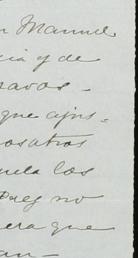 n Manuel
cia y de
ravos.-
que ajus-
osotros
uela los
Preg no
era que
an-